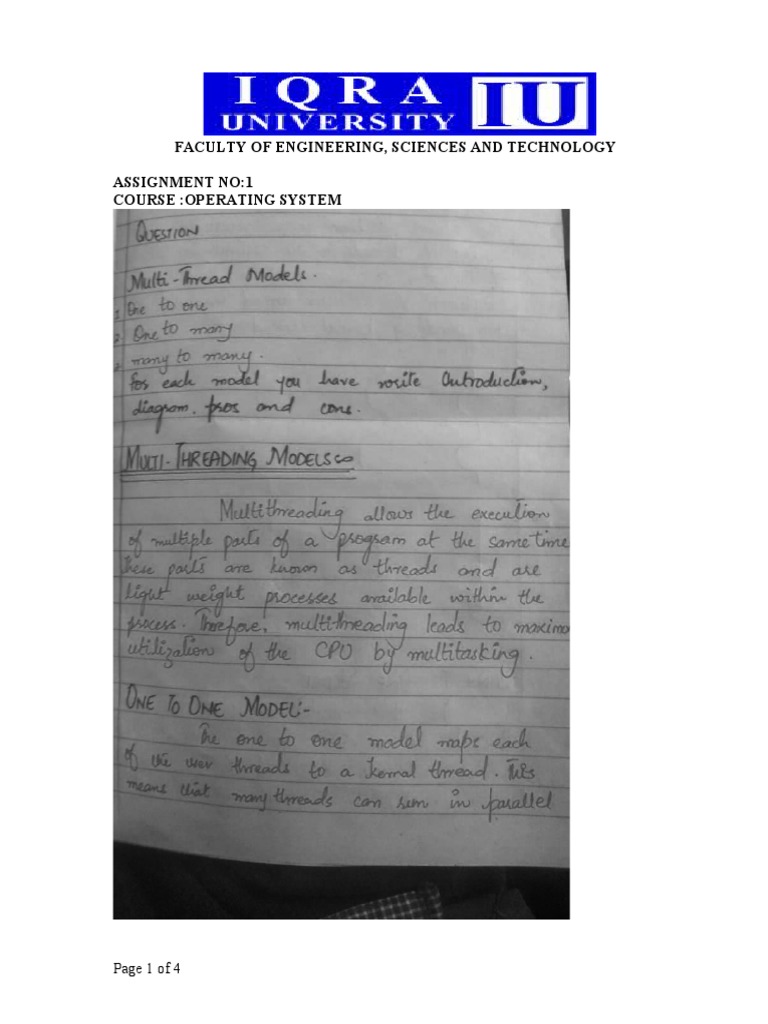 IQRA
UNIVERSITY IU
FACULTY OF ENGINEERING, SCIENCES AND TECHNOLOGY
ASSIGNMENT NO:1
COURSE :OPERATING SYSTEM
QUESTION
Multi-Thread Models.
1. One to one
2. One to many
3. many to many.
for each model you have write Introduction,
diagram, pros and cons.
MULTI-THREADING MODELS
Multithreading allows the execution
of multiple parts of a program at the same time
these parts are known as threads and are
light weight processes available within the
process. Therefore, multithreading leads to maximu
utilization of the CPU by multitasking.
ONE TO ONE MODEL:-
The one to one model maps each
of the user threads to a kernal thread. This
means that many threads can run in parallel
Page 1 of 4